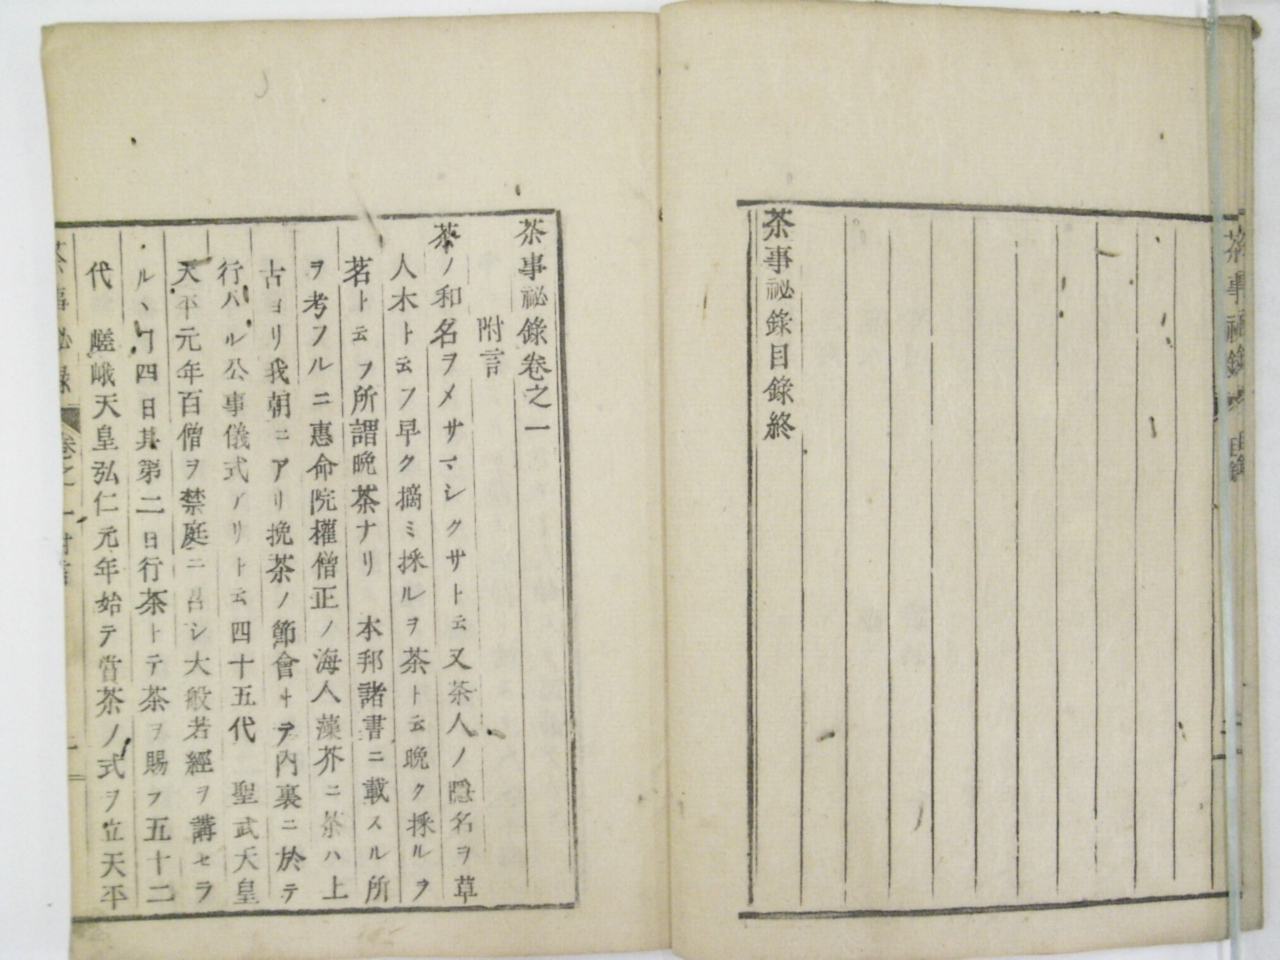 茶事祕錄 目錄
茶事祕錄目錄終
茶事祕錄卷之一
附言
茶ノ和名ヲメサマシクサト云又茶人ノ隱名ヲ草
人木ト云フ早ク摘ミ採ルヲ茶ト云晩ク採ルヲ
茗ト云フ所謂晩茶ナリ 本邦諸書ニ載スル所
ヲ考フルニ惠命院權僧正ノ海人藻芥ニ茶ハ上
古ヨリ我朝ニアリ挽茶ノ節會トテ內裏ニ於テ
行ハル公事儀式アリト云四十五代 聖武天皇
天平元年百僧ヲ禁庭ニ召シ大般若經ヲ講セラ
ルヽ丁四日其第二日行茶トテ茶ヲ賜フ五十二
代 嵯峨天皇弘仁元年始テ嘗茶ノ式ヲ立天平
茶事祕錄 卷之一 附言